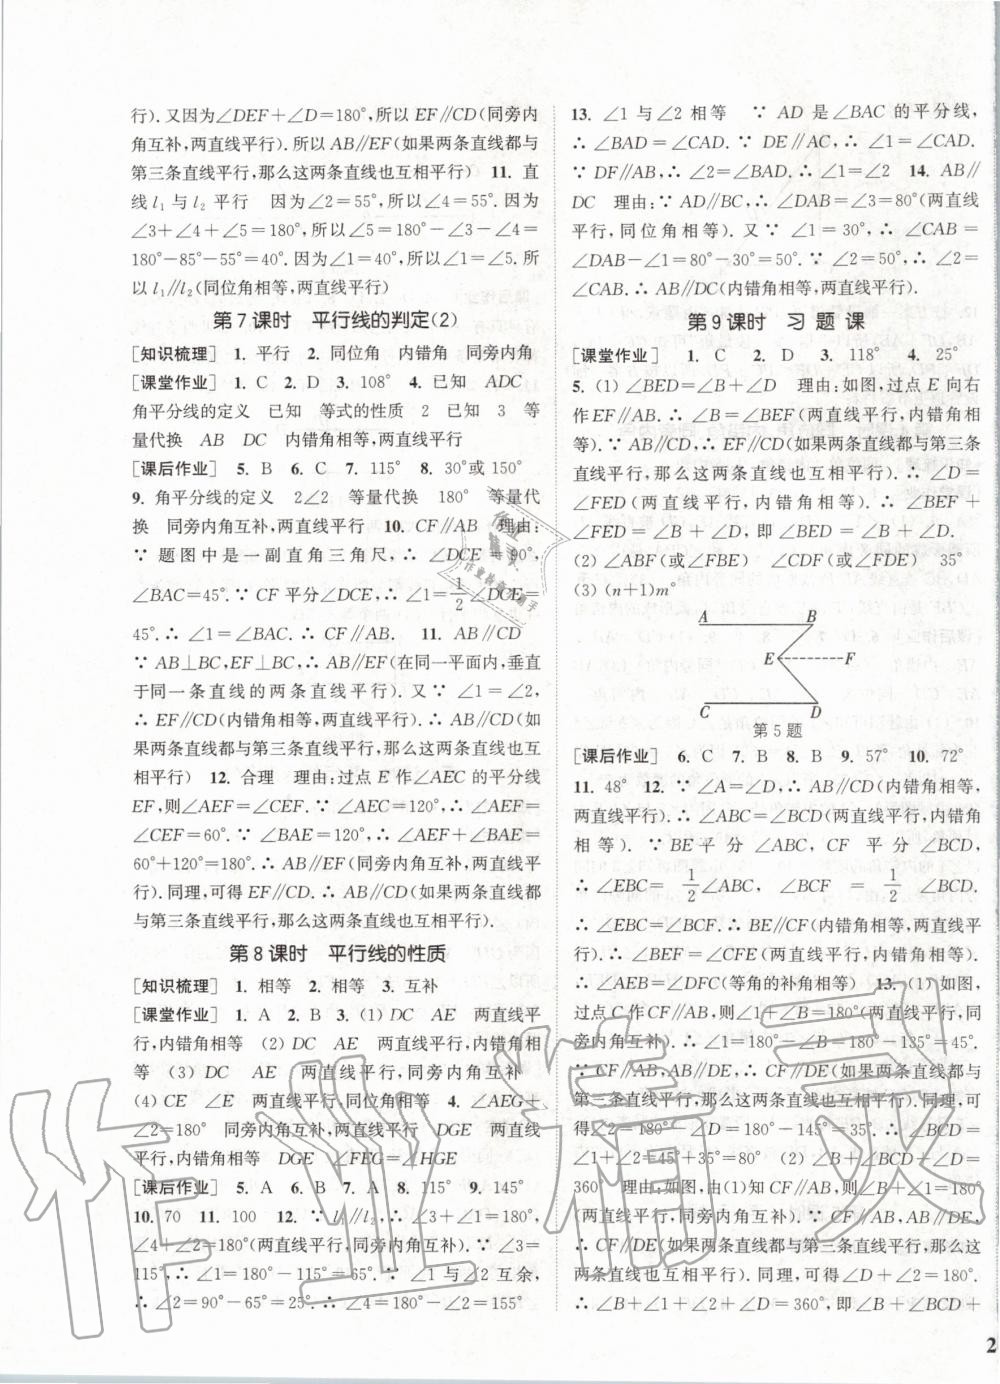 行). 又因为∠DEF+∠D=180°,所以 EF∥CD(同旁内
角互补,两直线平行). 所以 AB∥EF(如果两条直线都与
第三条直线平行,那么这两条直线也互相平行) 11. 直
线 l₁ 与 l₂ 平行 因为∠2=55°,所以∠4=55°. 因为
∠3+∠4+∠5=180°,所以∠5=180°-∠3-∠4=
180°-85°-55°=40°. 因为∠1=40°,所以∠1=∠5. 所
以 l₁∥l₂(同位角相等,两直线平行)
第 7 课时 平行线的判定(2)
[知识梳理] 1. 平行 2. 同位角 内错角 同旁内角
[课堂作业] 1. C 2. D 3. 108° 4. 已知 ADC
角平分线的定义 已知 等式的性质 2 已知 3 等
量代换 AB DC 内错角相等,两直线平行
[课后作业] 5. B 6. C 7. 115° 8. 30°或 150°
9. 角平分线的定义 2∠2 等量代换 180° 等量代
换 同旁内角互补,两直线平行 10. CF∥AB 理由:
∵ 题图中是一副直角三角尺,∴ ∠DCE=90°,
∠BAC=45°. ∵ CF 平分∠DCE,∴ ∠1=1/2∠DCE=
45°. ∴ ∠1=∠BAC. ∴ CF∥AB. 11. AB∥CD
∵ AB⊥BC,EF⊥BC,∴ AB∥EF(在同一平面内,垂直
于同一条直线的两条直线平行). 又∵ ∠1=∠2,
∴ EF∥CD(内错角相等,两直线平行). ∴ AB∥CD(如
果两条直线都与第三条直线平行,那么这两条直线也互
相平行) 12. 合理 理由:过点 E 作∠AEC 的平分线
EF,则∠AEF=∠CEF. ∵ ∠AEC=120°,∴ ∠AEF=
∠CEF=60°. ∵ ∠BAE=120°,∴ ∠AEF+∠BAE=
60°+120°=180°. ∴ AB∥EF(同旁内角互补,两直线平
行). 同理,可得 EF∥CD. ∴ AB∥CD(如果两条直线都
与第三条直线平行,那么这两条直线也互相平行).
第 8 课时 平行线的性质
[知识梳理] 1. 相等 2. 相等 3. 互补
[课堂作业] 1. A 2. B 3. (1) DC AE 两直线平
行,内错角相等 (2) DC AE 两直线平行,同位角相
等 (3) DC AE 两直线平行,同旁内角互补
(4) CE ∠E 两直线平行,同位角相等 4. ∠AEG+
∠2=180° 同旁内角互补,两直线平行 DGE 两直线
平行,内错角相等 DGE ∠FEG=∠HGE
[课后作业] 5. A 6. B 7. A 8. 115° 9. 145°
10. 70 11. 100 12. ∵ l₁∥l₂,∴ ∠3+∠1=180°,
∠4+∠2=180°(两直线平行,同旁内角互补). ∵ ∠3=
115°,∴ ∠1=180°-115°=65°. ∵ ∠1 与∠2 互余,
∴ ∠2=90°-65°=25°. ∴ ∠4=180°-∠2=155°
13. ∠1 与∠2 相等 ∵ AD 是∠BAC 的平分线,
∴ ∠BAD=∠CAD. ∵ DE∥AC,∴ ∠1=∠CAD.
∵ DF∥AB,∴ ∠2=∠BAD. ∴ ∠1=∠2 14. AB∥
DC 理由:∵ AD∥BC,∴ ∠DAB=∠3=80°(两直线
平行,同位角相等). 又∵ ∠1=30°,∴ ∠CAB=
∠DAB-∠1=80°-30°=50°. ∵ ∠2=50°,∴ ∠2=
∠CAB. ∴ AB∥DC(内错角相等,两直线平行)
第 9 课时 习 题 课
[课堂作业] 1. C 2. D 3. 118° 4. 25°
5. (1) ∠BED=∠B+∠D 理由:如图,过点 E 向右
作 EF∥AB. ∴ ∠B=∠BEF(两直线平行,内错角相
等). ∵ AB∥CD,∴ EF∥CD(如果两条直线都与第三条
直线平行,那么这两条直线也互相平行). ∴ ∠D=
∠FED(两直线平行,内错角相等). ∴ ∠BEF+
∠FED=∠B+∠D,即∠BED=∠B+∠D
(2) ∠ABF(或∠FBE) ∠CDF(或∠FDE) 35°
(3) (n+1)m°
A B
E F
C D
第 5 题
[课后作业] 6. C 7. B 8. B 9. 57° 10. 72°
11. 48° 12. ∵ ∠A=∠D,∴ AB∥CD(内错角相等,
两直线平行). ∴ ∠ABC=∠BCD(两直线平行,内错角
相等). ∵ BE 平分∠ABC,CF 平分∠BCD,
∴ ∠EBC=1/2∠ABC,∠BCF=1/2∠BCD.
∴ ∠EBC=∠BCF. ∴ BE∥CF(内错角相等,两直线平
行). ∴ ∠BEF=∠CFE(两直线平行,内错角相等).
∴ ∠AEB=∠DFC(等角的补角相等) 13. (1) 如图,
过点 C 作 CF∥AB,则∠1+∠B=180°(两直线平行,同
旁内角互补). ∴ ∠1=180°-∠B=180°-135°=45°.
∵ CF∥AB,AB∥DE,∴ CF∥DE(如果两条直线都与
第三条直线平行,那么这两条直线也互相平行). 同理,可
得∠2=180°-∠D=180°-145°=35°. ∴ ∠BCD=
∠1+∠2=45°+35°=80° (2) ∠B+∠BCD+∠D=
360° 理由:如图,由(1)知 CF∥AB,则∠B+∠1=180°
(两直线平行,同旁内角互补). ∵ CF∥AB,AB∥DE,
∴ CF∥DE(如果两条直线都与第三条直线平行,那么这
两条直线也互相平行). 同理,可得∠D+∠2=180°.
∴ ∠B+∠1+∠2+∠D=360°,即∠B+∠BCD+
2
作业精灵